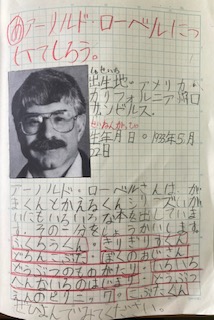 あアーノルド・ローベルについてしろう。
しゅっせいち
出生地・アメリカ・
カリフォルニア州ロサンゼルス
せいねんがっぴ
生年月日。1933年5月
22日
アーノルド・ローベルさんは、が
まくんとかえるくんシリーズい
がいにもいろいろな本を出していま
す。その一分をしょうかいします。
ふくろうくん・きりぎりすくん
どろんここぶた・ぼくのおじさん
どうぶつものがたり・いろいろ
へんないろのはじまり。
人のピクニック・こぶたくん
ぜひよんでみてください。